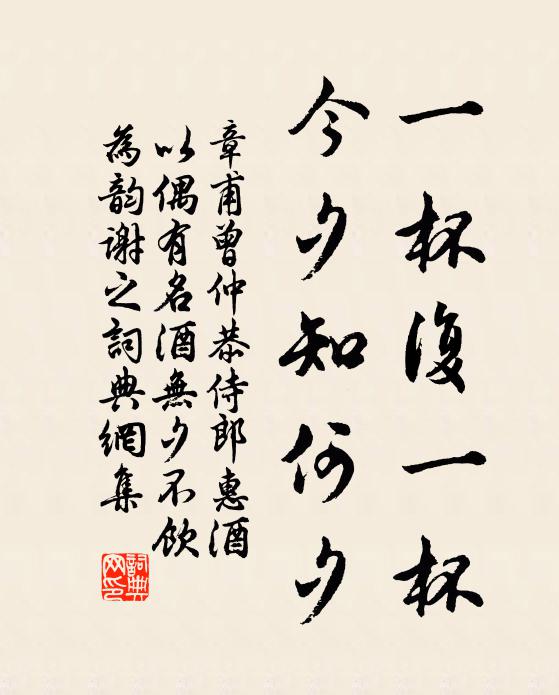 一杯復一杯
今夕知何夕
章甫曾仲恭侍郎惠酒
以偶有名酒無夕不飲
為韵謝之詞典網集
詞典網印